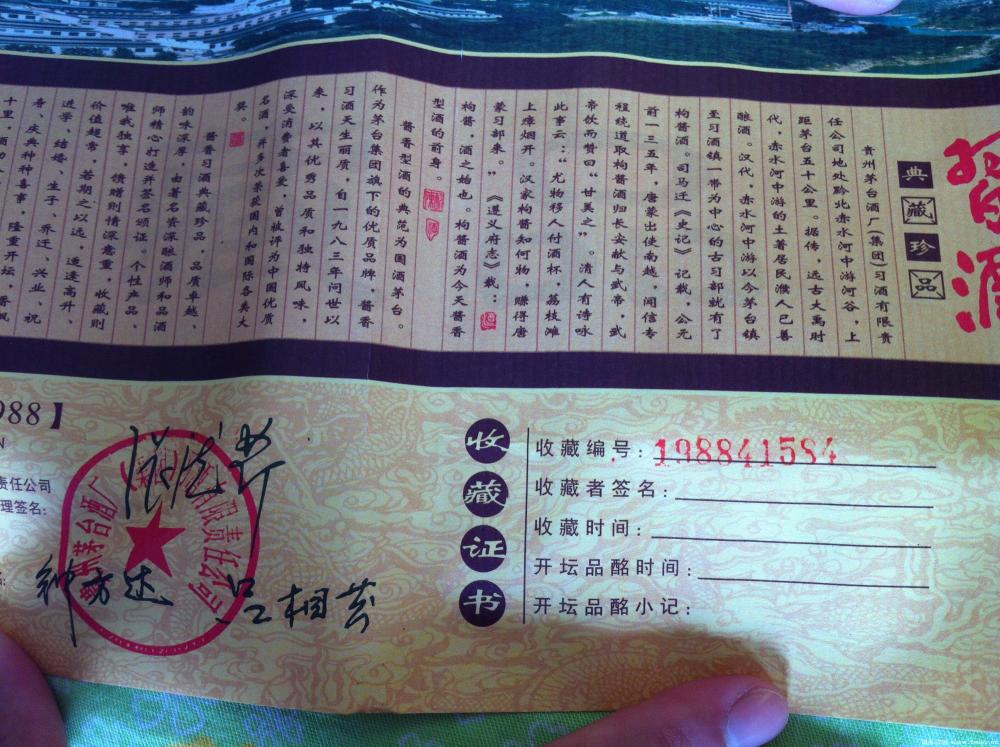 習酒
典藏珍品
贵州茅台酒厂(集团)习酒有限责
任公司地处黔北赤水河中游河谷,上
距茅台五十公里。据传,远古大禹时
代,赤水河中游的土著居民濮人已善
酿酒。汉代,赤水河中游以今茅台镇
至习酒镇一带为中心的古习部就有了
枸酱酒。司马迁《史记》记载,公元
前一三五年,唐蒙出使南越,闻信专
程绕道取枸酱酒归长安献与武帝,武
帝饮而赞曰“甘美之”。清人有诗咏
此事云:“尤物移人付酒杯,荔枝滩
上瘴烟开。汉家枸酱知何物,赚得唐
蒙习部来。”《遵义府志》载:
枸酱,酒之始也。枸酱酒为今天酱香
型酒的前身。
酱香型酒的典范为国酒茅台。
作为茅台集团旗下的优质品牌,酱香
习酒天生丽质,自一九八三年问世以
来,以其优秀品质和独特风味,
深受消费者喜爱,曾被评为中国优质
名酒,并多次荣获国内和国际各类大
奖。
酱香习酒典藏珍品,品质卓越、
韵味深厚,由著名资深酿酒师和品酒
师精心打造并签名颁证。个性产品、
唯我独享,馈赠则情深意重,收藏则
价值超常,若期之以远,适逢高升、
进学、结婚、生子、乔迁、兴业、祝
寿、庆典种种喜事,隆重开坛,香飘
十里
988】
N
责任公司
理签名:
钟方达 吕相芬
收藏证书
收藏编号:198841584
收藏者签名:
收藏时间:
开坛品酩时间:
开坛品酩小记: